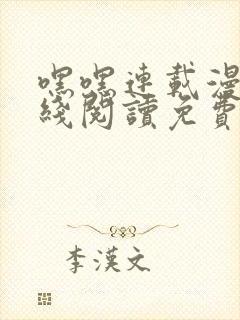 嘿嘿連載漫
綫閱讀免費
李漢文